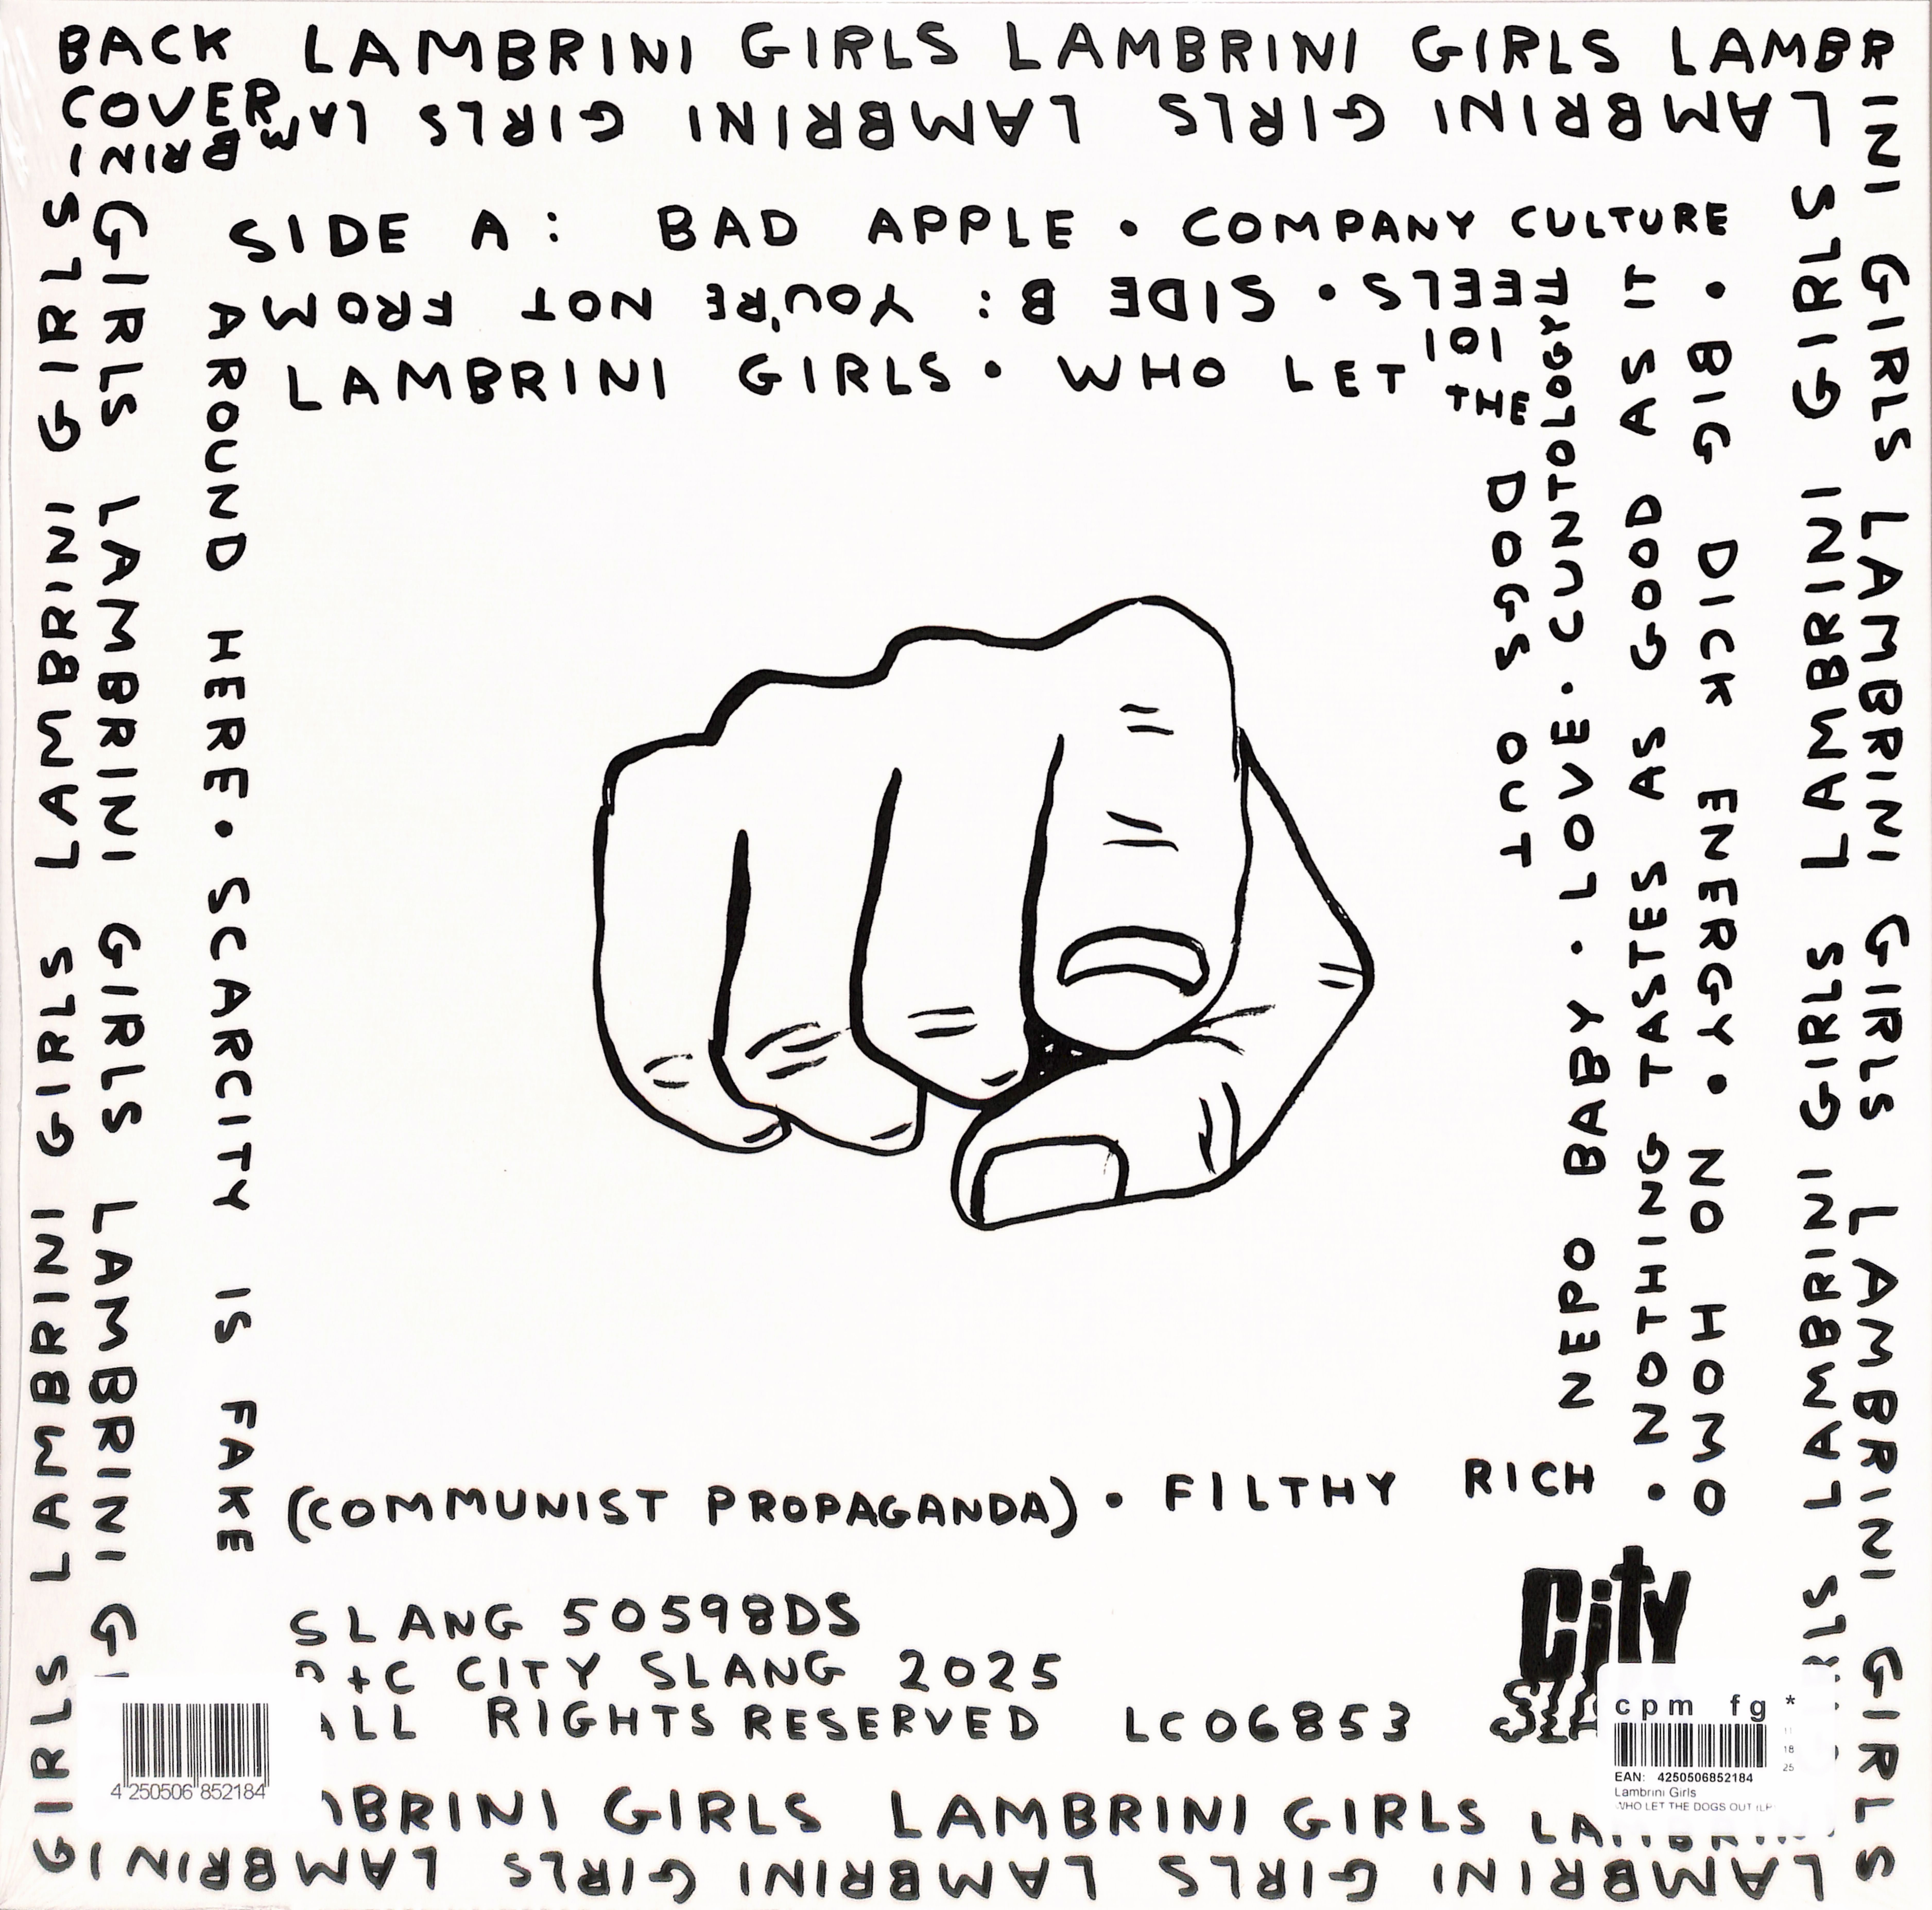 BACK
COVER
LAMBRINI GIRLS LAMBRINI GIRLS LAMBR
INI GIRLS LAMBRINI GIRLS LAMBRINI GIRLS
LAMBRINI GIRLS LAMBRINI GIRLS LAMBRINI
GIRLS LAMBRINI GIRLS LAMBRINI GIRLS
LAMBRINI GIRLS LAMBRINI GIRLS LAM
BRINI
GIRLS LAMBRINI GIRLS LAMBRINI GI
BRINI GIRLS LAMBRINI GIRLS
GIRLS LAMBRINI GIRLS LAMBRINI GIRLS
SIDE A: BAD APPLE • COMPANY CULTURE
• BIG DICK ENERGY • NO HOMO
• NOTHING TASTES AS GOOD AS IT
FEELS • SIDE B: YOU'RE NOT FROM
AROUND HERE • SCARCITY IS FAKE
(COMMUNIST PROPAGANDA) • FILTHY RICH
NEPO BABY • LOVE • CUNTOLOGY
101
LAMBRINI GIRLS • WHO LET THE
DOGS OUT
SLANG 50598DS
P+C CITY SLANG 2025
ALL RIGHTS RESERVED LC06853
City
4 250506 852184
cpm fg *
11
18
25
EAN: 4250506852184
Lambrini Girls
WHO LET THE DOGS OUT (LP